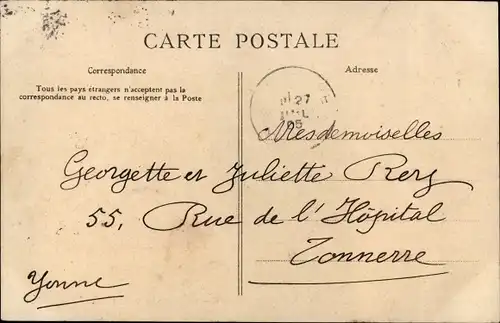 CARTE POSTALE
Correspondance
Adresse
Tous les pays étrangers n'acceptent pas la
correspondance au recto, se renseigner à la Poste
27
05
Mesdemoiselles
Georgette et Juliette Rey
55, Rue de l'Hôpital
Tonnerre
Yonne